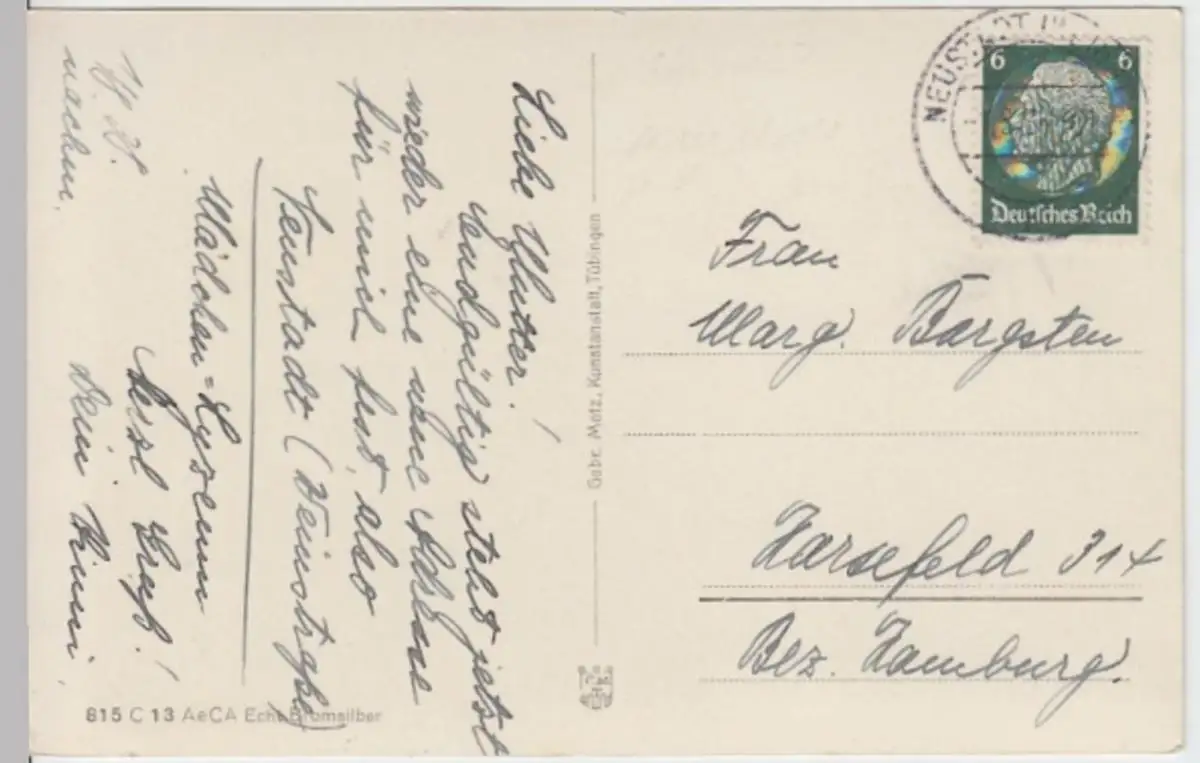 Liebe Mutter!
Endgültig steht jetzt
wieder eine neue Adresse
für mich fest, also
Neustadt (Weinstraße)
Mädchen-Lyzeum
Herzl. Gruß!
Dein
Gebr. Metz, Kunstanstalt, Tübingen
815 C 13 AeCA Echt Bromsilber
NEUSTADT
6 6
Deutsches Reich
Frau
Marg. Bargsten
Harsefeld 314
Bez. Hamburg.